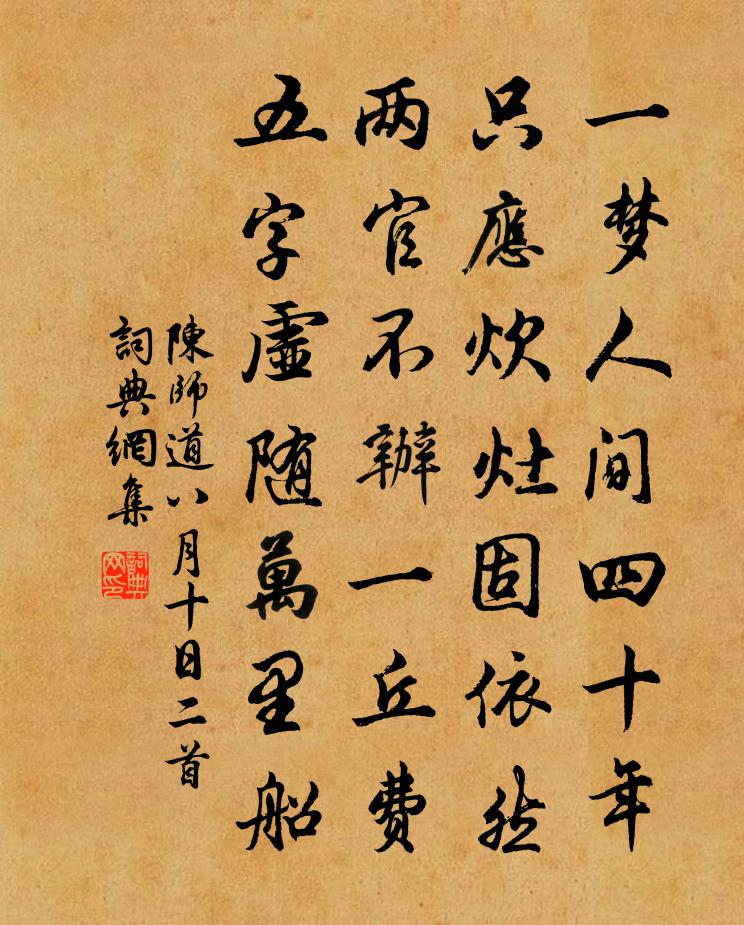 一梦人间四十年
只應炊灶固依然
两官不辦一丘費
五字虚随萬里船
陳師道八月十日二首
詞典網集
詞典网印